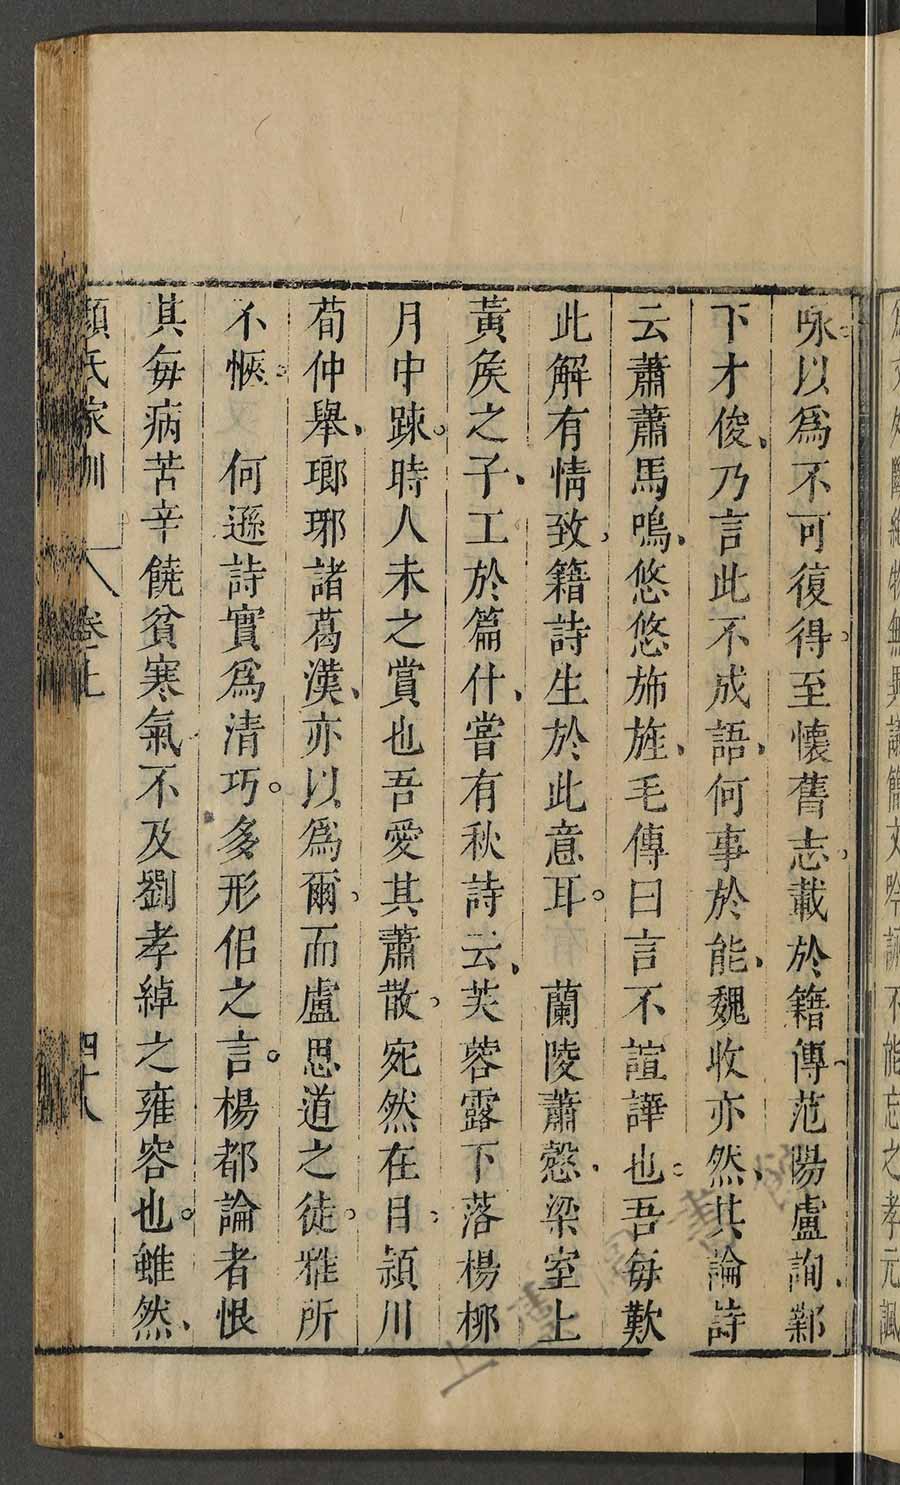 咏以爲不可復得至懷舊志載於籍傳范陽盧詢鄴
下才俊乃言此不成語何事於能魏收亦然其論詩
云蕭蕭馬鳴悠悠斾旌毛傳曰言不諠譁也吾每歎
此解有情致籍詩生於此意耳　蘭陵蕭慤梁室上
黃矦之子工於篇什嘗有秋詩云芙蓉露下落楊栁
月中踈時人未之賞也吾愛其蕭散宛然在目潁川
荀仲舉瑯琊諸葛漢亦以爲爾而盧思道之徒雅所
不愜　何遜詩實爲清巧多形佀之言楊都論者恨
其每病苦辛饒貧寒氣不及劉孝綽之雍容也雖然
顏氏家訓　卷上　四十八